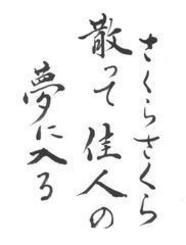 さくらさくら
散って佳人の
夢に入る